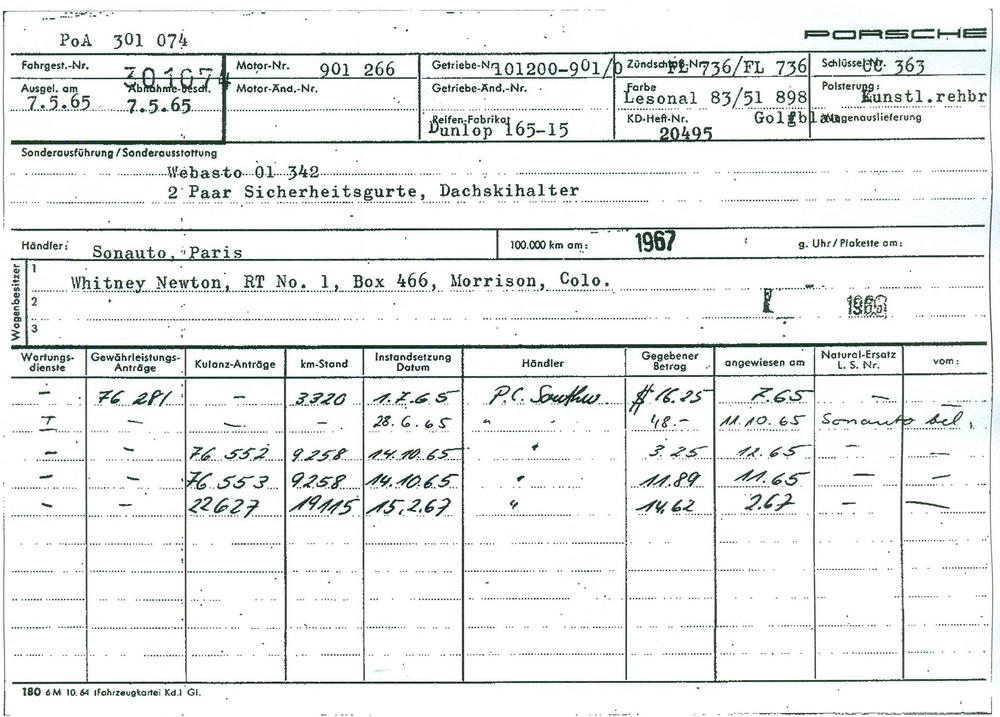 PoA 301 074
PORSCHE
Fahrgest.-Nr. 301074 Motor-Nr. 901 266 Getriebe-Nr. 101200-901/0 Zündschloß-Nr. FL 736/FL 736 Schlüssel-Nr. CC 363
Ausgel. am 7.5.65 Abnahme-Besch. 7.5.65 Motor-Änd.-Nr. Getriebe-Änd.-Nr. Farbe Lesonal 83/51 898 Golfblau Polsterung: Kunstl.rehbr
Reifen-Fabrikat Dunlop 165-15 KD-Heft-Nr. 20495 Wagenauslieferung
Sonderausführung/Sonderausstattung
Webasto 01 342
2 Paar Sicherheitsgurte, Dachskihalter
Händler: Sonauto, Paris 100.000 km am: 1967 g. Uhr/Plakette am:
Wagenbesitzer
1 Whitney Newton, RT No. 1, Box 466, Morrison, Colo.
2
3
Wartungs-dienste Gewährleistungs-Anträge Kulanz-Anträge km-Stand Instandsetzung Datum Händler Gegebener Betrag angewiesen am Natural-Ersatz L. S. Nr. vom:
- 76 281 - 3320 1.7.65 P.C. $ 16.25 7.65 - -
I - - - 28.6.65 " 48.- 11.10.65 Sonauto bel.
- - 76 552 9.258 14.10.65 " 3.25 12.65 - -
- - 76 553 9258 14.10.65 " 11.89 11.65 - -
- - 22627 19115 15.2.67 " 14.62 2.67 - -
180 6M 10.64 (Fahrzeugkartei Kd.) Gl.